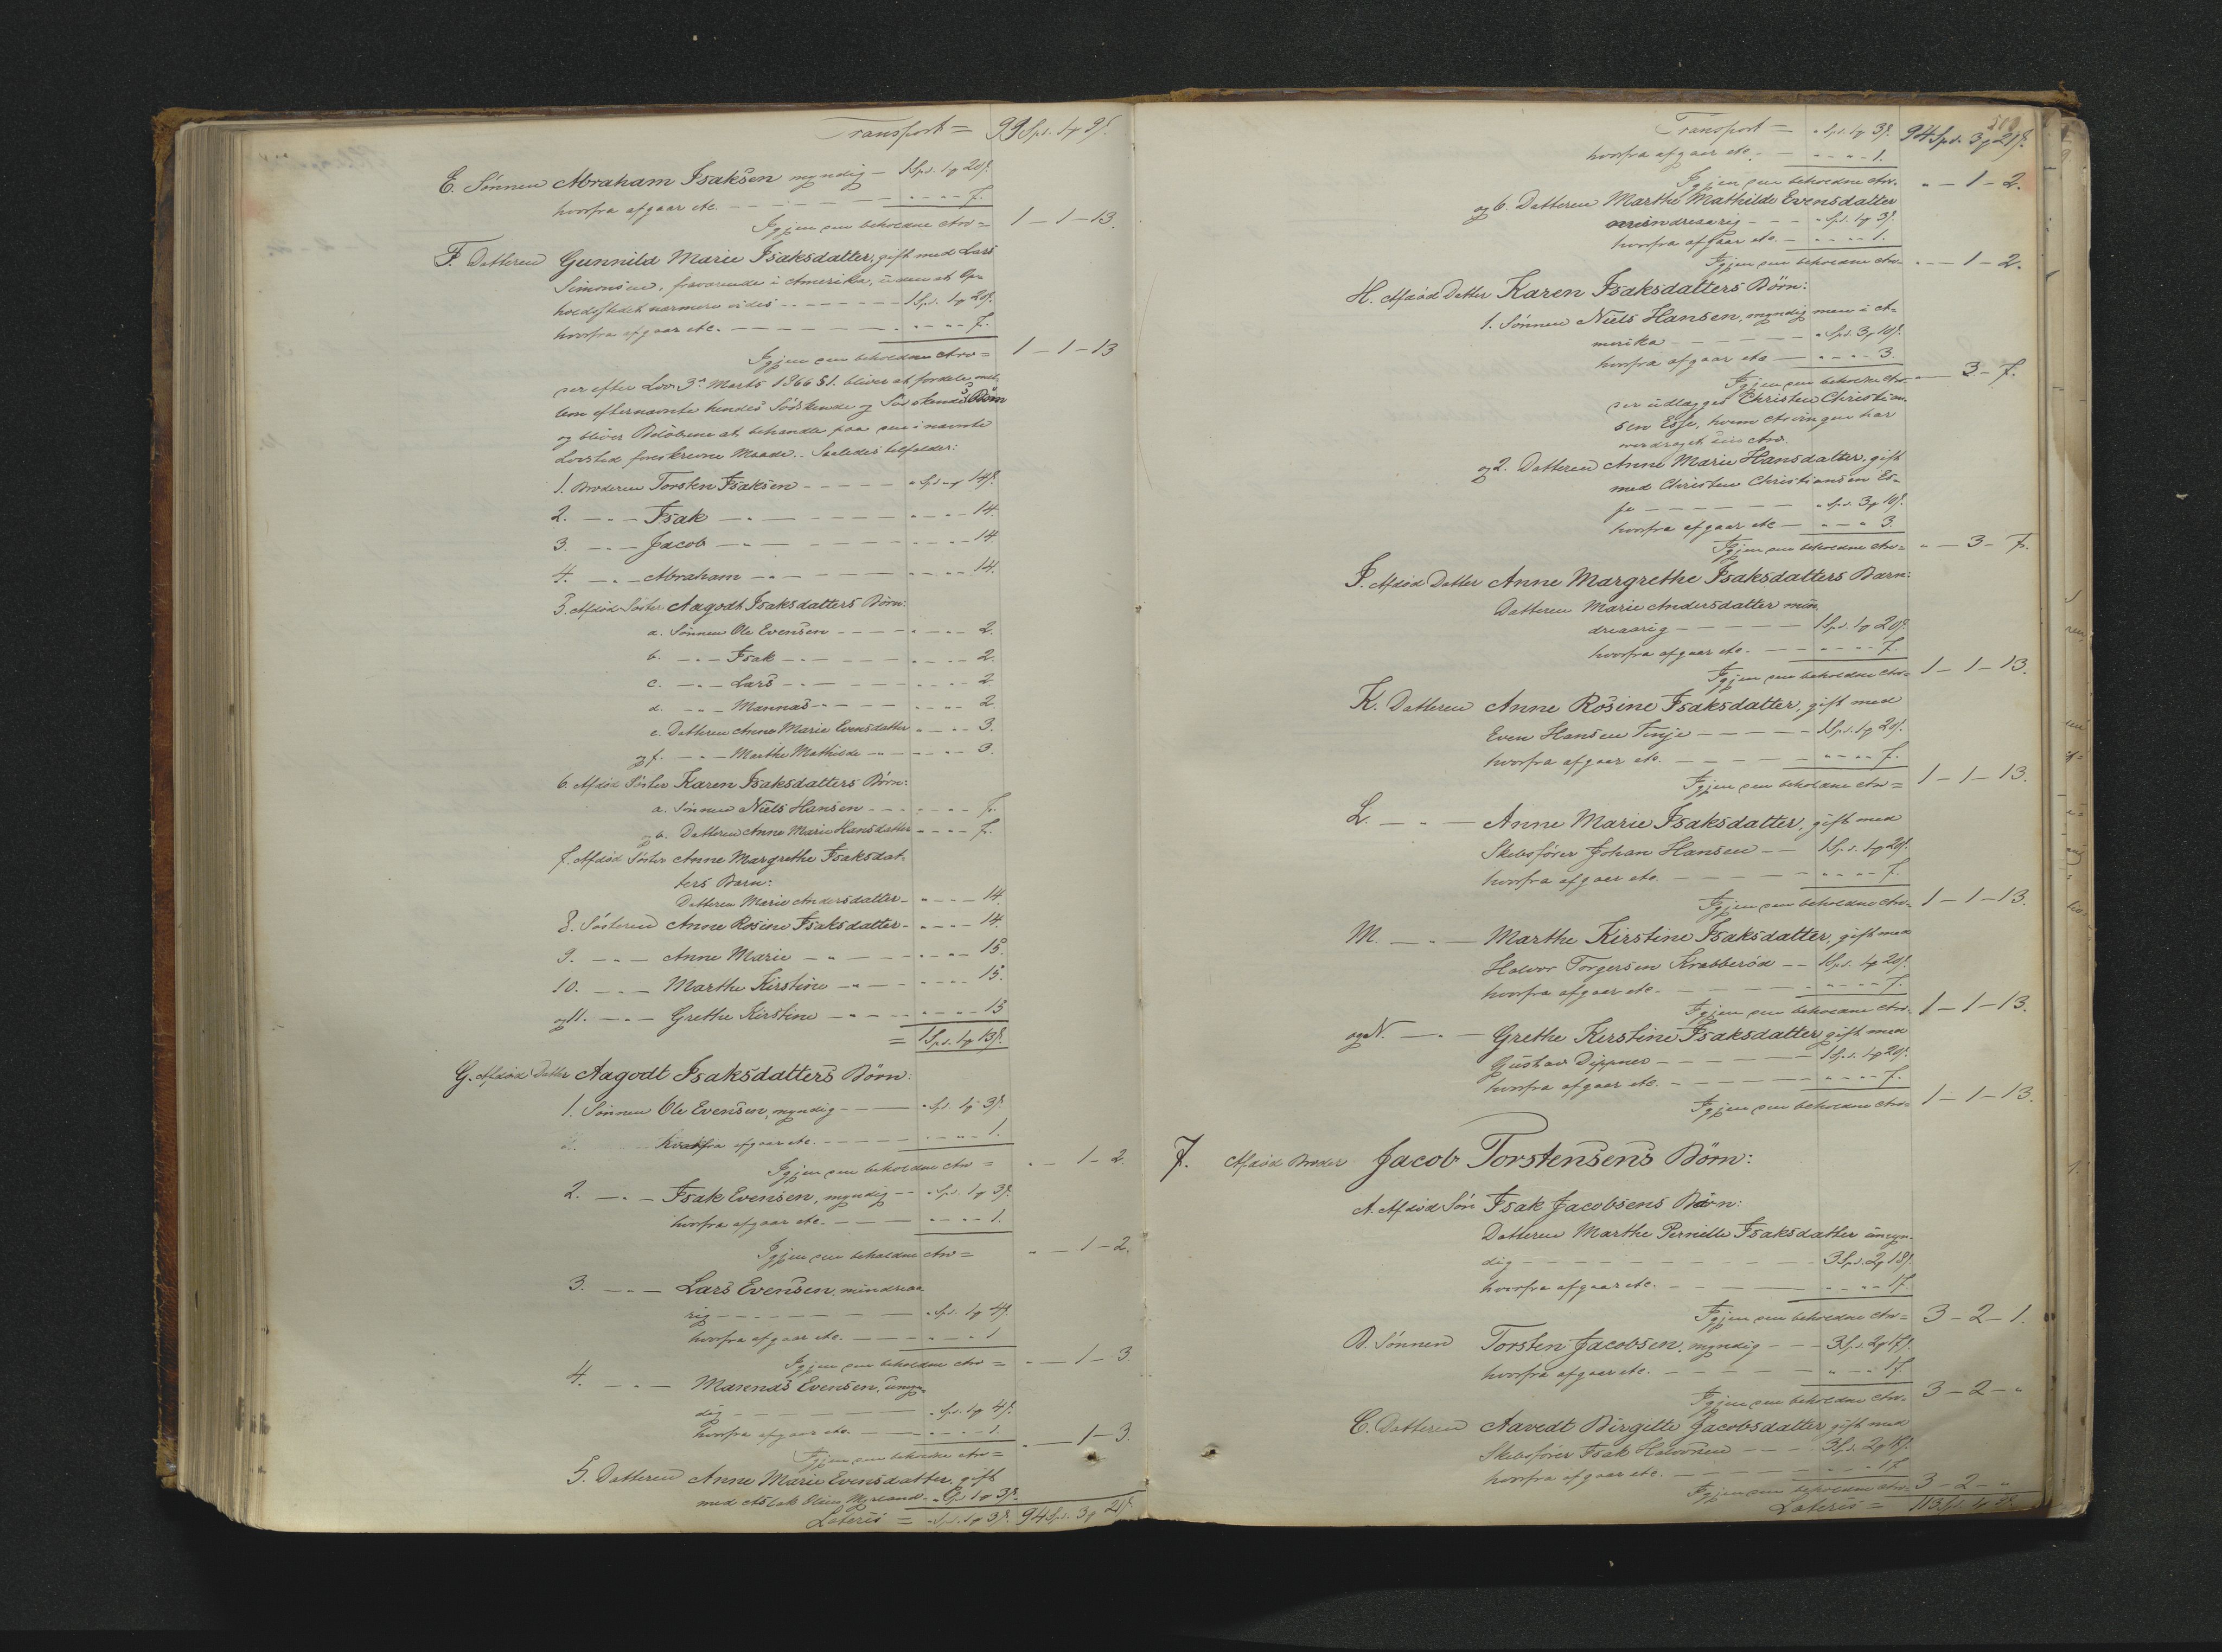 Transport = 99 Spd. 1 ϟ 9 β.
E. Sönnen Abraham Isaksen myndig — 1 Spd. 1 ϟ 20 β.
hvorfra afgaar etc. — — — — „ — „ — 7.
Igjen een beholdne Arv = 1 — 1 — 13.
F. Datteren Gunnild Marie Isaksdatter, gift med Lars
Simonsen, fraværende i Amerika, uden at Op-
holdstedet nærmere vides — — — 1 Spd. 1 ϟ 20 β.
hvorfra afgaar etc. — — — — „ — „ — 7.
Igjen den beholdne Arv = 1 — 1 — 13
der efter Lov 3die Marts 1866 § 1. bliver at fordele mel-
lem efternævnte hendes Södskende og Södskendes Börn
og bliver Belöbene at behandle paa den i nævnte
Lovsted foreskrevne Maade. Saaledes tilfalder:
1. Broderen Torsten Isaksen — — — „ Spd. „ ϟ 14 β.
2. — „ — Isak — „ — — — „ — „ — 14.
3. — „ — Jacob — „ — — — „ — „ — 14.
4. — „ — Abraham — „ — — — „ — „ — 14.
5. Afdöd Söster Aagodt Isaksdatters Börn:
a. Sönnen Ole Evensen — — — „ — „ — 2.
b. — „ — Isak — „ — — „ — „ — 2.
c. — „ — Lars — „ — — „ — „ — 2
d. — „ — Mannas — „ — — „ — „ — 2.
e. Datteren Anne Marie Evensdatter „ — „ — 3.
og f. — „ — Marthe Mathilde — „ — „ — „ — 3.
6. Afdöd Söster Karen Isaksdatters Börn:
a. Sönnen Niels Hansen — — „ — „ — 7.
og b. Datteren Anne Marie Hansdatter „ — „ — 7.
7. Afdöd Söster Anne Margrethe Isaksdat-
ters Barn:
Datteren Marie Andersdatter — „ — „ — 14.
8. Sösteren Anne Rosine Isaksdatter — „ — „ — 14.
9. — „ — Anne Marie — „ — — „ — „ — 15.
10. — „ — Marthe Kirstine — „ — „ — „ — 15.
og 11. — „ — Grethe Kirstine — „ — — „ — „ — 15
= 1 Spd. 1 ϟ 13 β.
G. Afdöd Datter Aagodt Isaksdatters Börn:
1. Sönnen Ole Evensen, myndig — — „ Spd. 1 ϟ 3 β.
hvorfra afgaar etc. — — — „ — „ — 1.
Igjen den beholdne Arv = „ — 1 — 2.
2. — „ — Isak Evensen, myndig — „ Spd. 1 ϟ 3 β.
hvorfra afgaar etc. — — — „ — „ — 1.
Igjen den beholdne Arv = „ — 1 — 2.
3. — „ — Lars Evensen, mindreaa-
rig — — — — — „ Spd. 1 ϟ 4 β.
hvorfra afgaar etc. — — — „ — „ — 1
Igjen den beholdne Arv = „ — 1 — 3
4. — „ — Mannas Evensen, umyn-
dig — — — — — „ Spd. 1 ϟ 4 β.
hvorfra afgaar etc. — — — „ — „ — 1.
Igjen den beholdne Arv = „ — 1 — 3.
5. Datteren Anne Marie Evensdatter, gift
med Aslak Olsen Myrland — „ Spd. 1 ϟ 3 β.
Lateris = „ Spd. 1 ϟ 3 β. 94 Spd. 3 ϟ 21 β.
Transport = „ Spd. 1 ϟ 3 β. 94 Spd. 3 ϟ 21 β.
hvorfra afgaar etc. — „ — „ — 1.
Igjen den beholdne Arv. „ — 1 — 2.
og 6. Datteren Marthe Mathilde Evensdatter
mindreaarig — — — „ Spd. 1 ϟ 3 β.
hvorfra afgaar etc. — „ — „ — 1.
Igjen den beholdne Arv = „ — 1 — 2.
H. Afdöd Datter Karen Isaksdatters Börn:
1. Sönnen Niels Hansen, myndig men i A-
merika — — — — „ Spd. 3 ϟ 10 β.
hvorfra afgaar etc — „ — „ — 3.
Igjen den beholdne Arv = „ — 3 — 7.
der udlægges Christen Christian-
sen Esje, hvem Arvingen har
overdraget sin Arv.
og 2. Datteren Anne Marie Hansdatter, gift
med Christen Christiansen Es-
je — — — — „ Spd. 3 ϟ 10 β.
hvorfra afgaar etc — „ — „ 3.
Igjen den beholdne Arv = „ — 3 — 7.
I. Afdöd Datter Anne Margrethe Isaksdatters Barn:
Datteren Marie Andersdatter min-
dreaarig — — — — 1 Spd. 1 ϟ 20 β.
hvorfra afgaar etc. — — „ — „ — 7.
Igjen den beholdne Arv = 1 — 1 — 13.
K. Datteren Anne Rosine Isaksdatter, gift med
Even Hansen Tinje — — — 1 Spd. 1 ϟ 20 β.
hvorfra afgaar etc. — — — „ — „ — 7.
Igjen den beholdne Arv = 1 — 1 — 13.
L. — „ — Anne Marie Isaksdatter, gift med
Skibsförer Johan Hansen — — 1 Spd. 1 ϟ 20 β.
hvorfra afgaar etc. — — — „ — „ — 7.
Igjen den beholdne Arv = 1 — 1 — 13.
M. — „ — Marthe Kirstine Isaksdatter, gift med
Halvor Torgersen Krabberöd — — 1 Spd. 1 ϟ 20 β.
hvorfra afgaar etc. — — — „ — „ — 7.
Igjen den beholdne Arv = 1 — 1 — 13.
og N. — „ — Grethe Kirstine Isaksdatter, gift med
Gustav Dippner — — — — 1 Spd. 1 ϟ 20 β.
hvorfra afgaar etc. — — — „ — „ — 7.
Igjen den beholdne Arv = 1 — 1 — 13.
7. Afdöd Broder Jacob Torstensens Börn:
A. Afdöd Sön Isak Jacobsens Barn:
Datteren Marthe Pernille Isaksdatter umyn-
dig — — — — — 3 Spd. 2 ϟ 18 β.
hvorfra afgaar etc. — — — „ — „ — 17.
Igjen den beholdne Arv = 3 — 2 — 1.
B. Sönnen Torsten Jacobsen, myndig — — 3 Spd. 2 ϟ 17 β.
hvorfra afgaar etc. — — — „ — „ — 17
Igjen den beholdne Arv = 3 — 2 — „
C. Datteren Aavedt Birgitte Jacobsdatter, gift med
Skibsförer Isak Halvorsen — — 3 Spd. 2 ϟ 17 β.
hvorfra afgaar etc. — — — „ — „ — 17
Igjen den beholdne Arv = 3 — 2 — „
Lateris = 113 Spd.